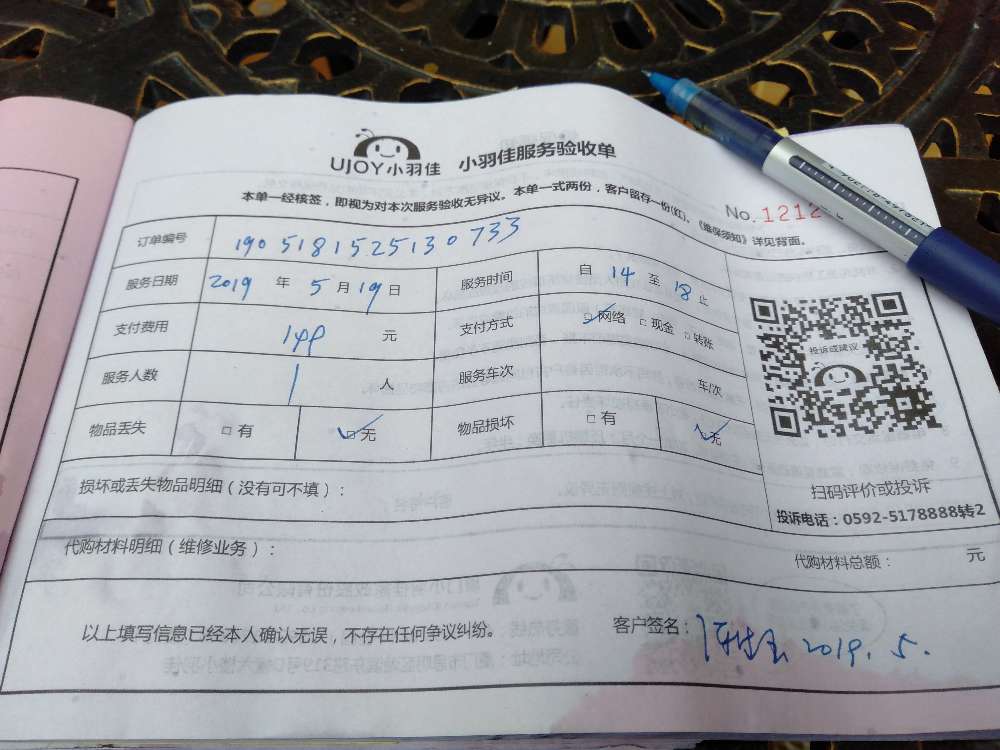 UJOY小羽佳 小羽佳服务验收单
本单一经核签，即视为对本次服务验收无异议。本单一式两份，客户留存一份(红)。《维保须知》详见背面。
No.1212
订单编号 1905181525130733
服务日期 2019 年 5 月 19 日 服务时间 自 14 至 18 止
支付费用 149 元 支付方式 网络 现金 转账
服务人数 1 人 服务车次 车/次
物品丢失 有 无 物品损坏 有 无
投诉或建议
扫码评价或投诉
投诉电话：0592-5178888转2
损坏或丢失物品明细（没有可不填）：
代购材料明细（维修业务）： 代购材料总额： 元
以上填写信息已经本人确认无误，不存在任何争议纠纷。 客户签名： 2019.5.